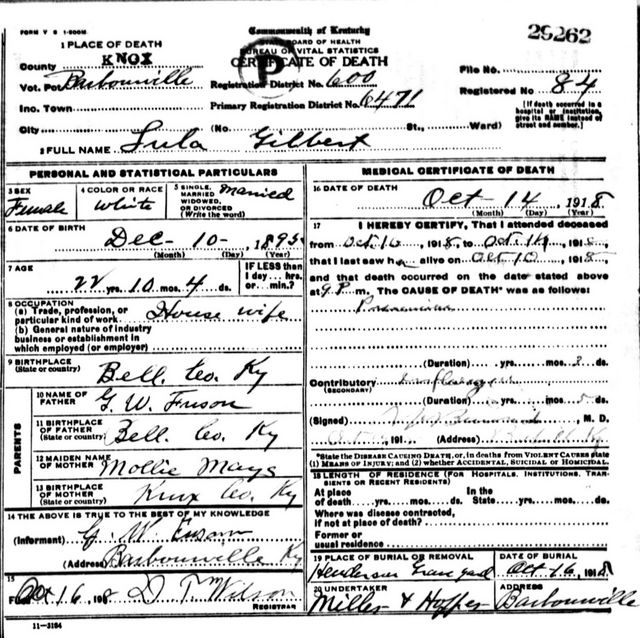 FORM V S 1-500M.
Commonwealth of Kentucky
STATE BOARD OF HEALTH
BUREAU OF VITAL STATISTICS
CERTIFICATE OF DEATH
P
29262
1 PLACE OF DEATH
County KNOX
Vot. Barbourville
Inc. Town
City
Registration District No. 600
Primary Registration District No. 6471
(No. St., Ward)
File No.
Registered No. 84
[If death occurred in a hospital or institution, give its NAME instead of street and number.]
2 FULL NAME Lula Gilbert
PERSONAL AND STATISTICAL PARTICULARS
3 SEX Female
4 COLOR OR RACE White
5 SINGLE, MARRIED WIDOWED, OR DIVORCED (Write the word) Married
6 DATE OF BIRTH
Dec- 10- 1895
(Month) (Day) (Year)
7 AGE
22 yrs. 10 mos. 4 ds.
IF LESS than 1 day... hrs. or...min.?
8 OCCUPATION
(a) Trade, profession, or particular kind of work House wife
(b) General nature of industry business or establishment in which employed (or employer)
9 BIRTHPLACE (State or country)
Bell. Co. Ky
PARENTS
10 NAME OF FATHER G. W. Fuson
11 BIRTHPLACE OF FATHER (State or country) Bell. Co. Ky
12 MAIDEN NAME OF MOTHER Mollie Mays
13 BIRTHPLACE OF MOTHER (State or country) Knox Co. Ky
14 THE ABOVE IS TRUE TO THE BEST OF MY KNOWLEDGE
(Informant) G. W. Fuson
(Address) Barbourville Ky
15
Filed Oct 16 1918 D T Wilson
REGISTRAR
11-3184
MEDICAL CERTIFICATE OF DEATH
16 DATE OF DEATH
Oct- 14, 1918
(Month) (Day) (Year)
17 I HEREBY CERTIFY, That I attended deceased
from Oct. 10 1918, to Oct. 14, 1918,
that I last saw h alive on Oct 10, 1918,
and that death occurred on the date stated above
at 9 P. m. The CAUSE OF DEATH* was as follows:
Pneumonia
(Duration) yrs. mos. ds.
Contributory Influenza
(SECONDARY)
(Duration) yrs. mos. ds.
(Signed) M. D.
191 (Address) Ky
*State the DISEASE CAUSING DEATH, or, in deaths from VIOLENT CAUSES state (1) MEANS OF INJURY; and (2) whether ACCIDENTAL, SUICIDAL or HOMICIDAL.
18 LENGTH OF RESIDENCE (FOR HOSPITALS, INSTITUTIONS, TRANSIENTS OR RECENT RESIDENTS)
At place of death yrs. mos. ds.
In the State yrs. mos. ds.
Where was disease contracted, if not at place of death?
Former or usual residence
19 PLACE OF BURIAL OR REMOVAL
Henderson Grave yard
DATE OF BURIAL
Oct 16, 1918
20 UNDERTAKER
Miller & Hopper
ADDRESS
Barbourville